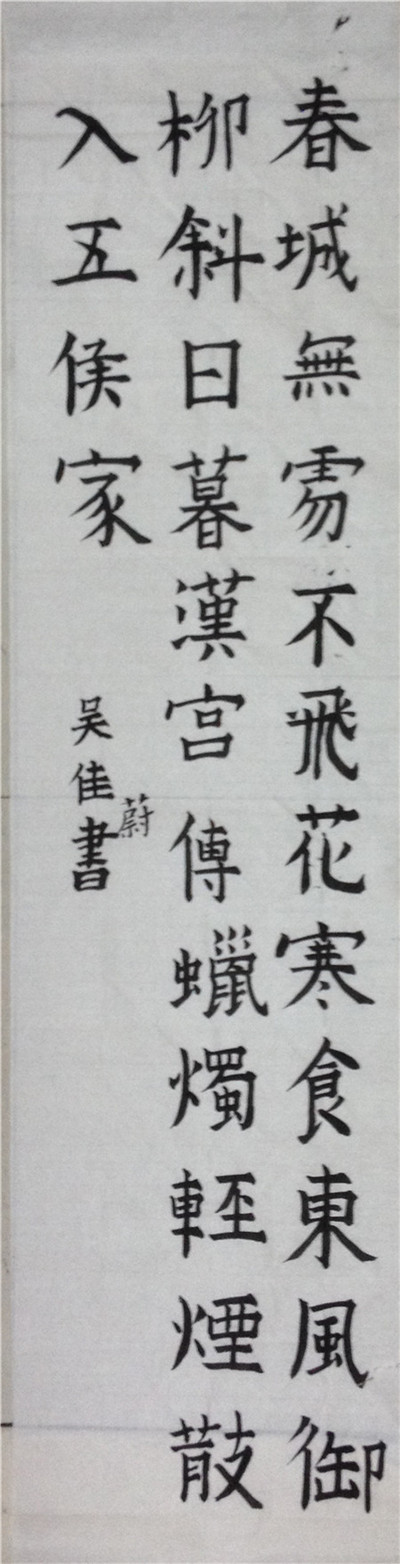 春城無處不飛花寒食東風御
柳斜日暮漢宮傳蠟燭輕煙散
入五侯家
吴佳書
蔚